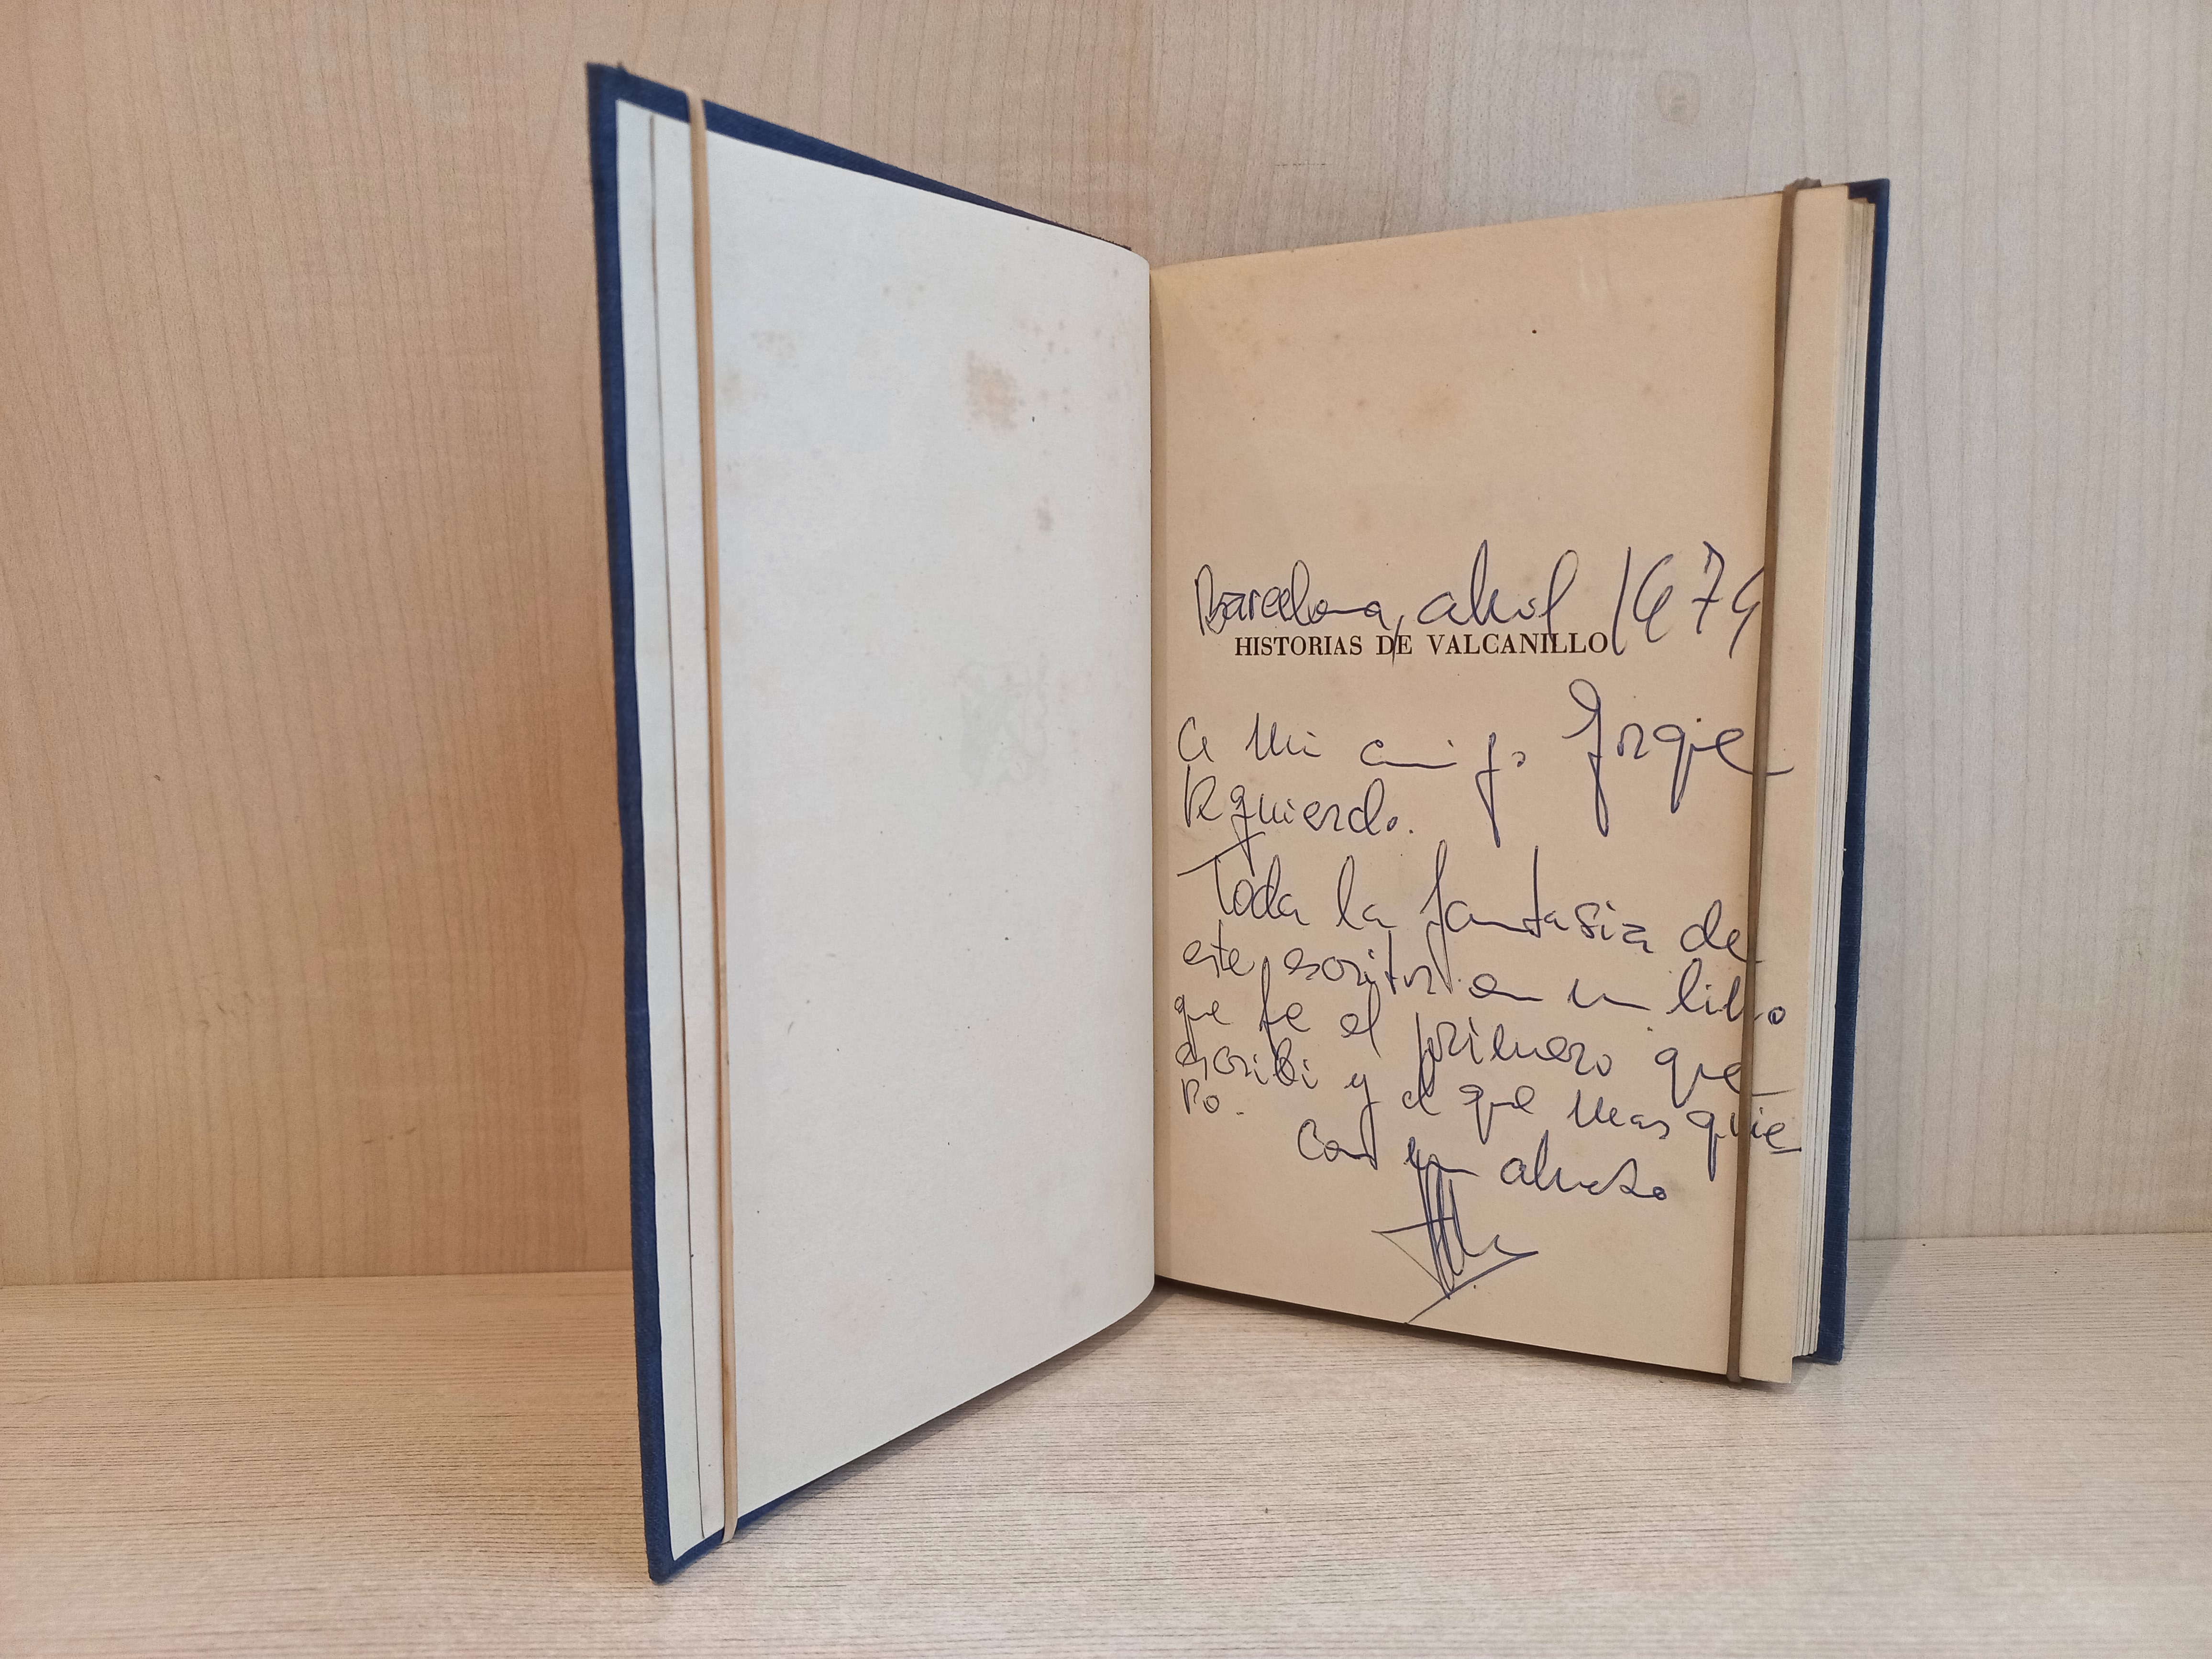 Barcelona, abril 1974
HISTORIAS DE VALCANILLO
a mi amigo Jorge
Izquierdo.
Toda la fantasia de
este escritor en un libro
que fue el primero que
escribi y el que mas quie
ro.
Con un abrazo